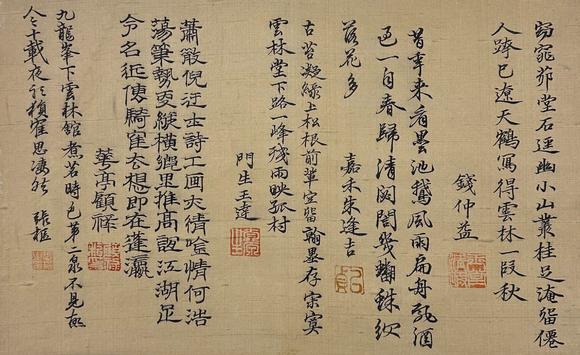 窈窕茆堂石逕幽小山叢桂足淹留僊
人蹟已遼天鶴寫得雲林一段秋
錢仲益
昔年來看墨池鵝風雨扁舟載酒
過一自春歸清閟閣幾蛛網
落花多
嘉禾朱逢吉
古苔凝綠上松根前輩空留翰墨存寂寞
雲林堂下路一峰殘雨映孤村
門生王逵
蕭散倪迂士詩工画情吟情何浩
蕩筆勢更縱橫鄉里推高誼江湖足
令名近傳騎隺去想即在蓬瀛
華亭顧祿
九龍峯下雲林館煮茗時第二泉不見高
人今十載夜思淒然 張樞